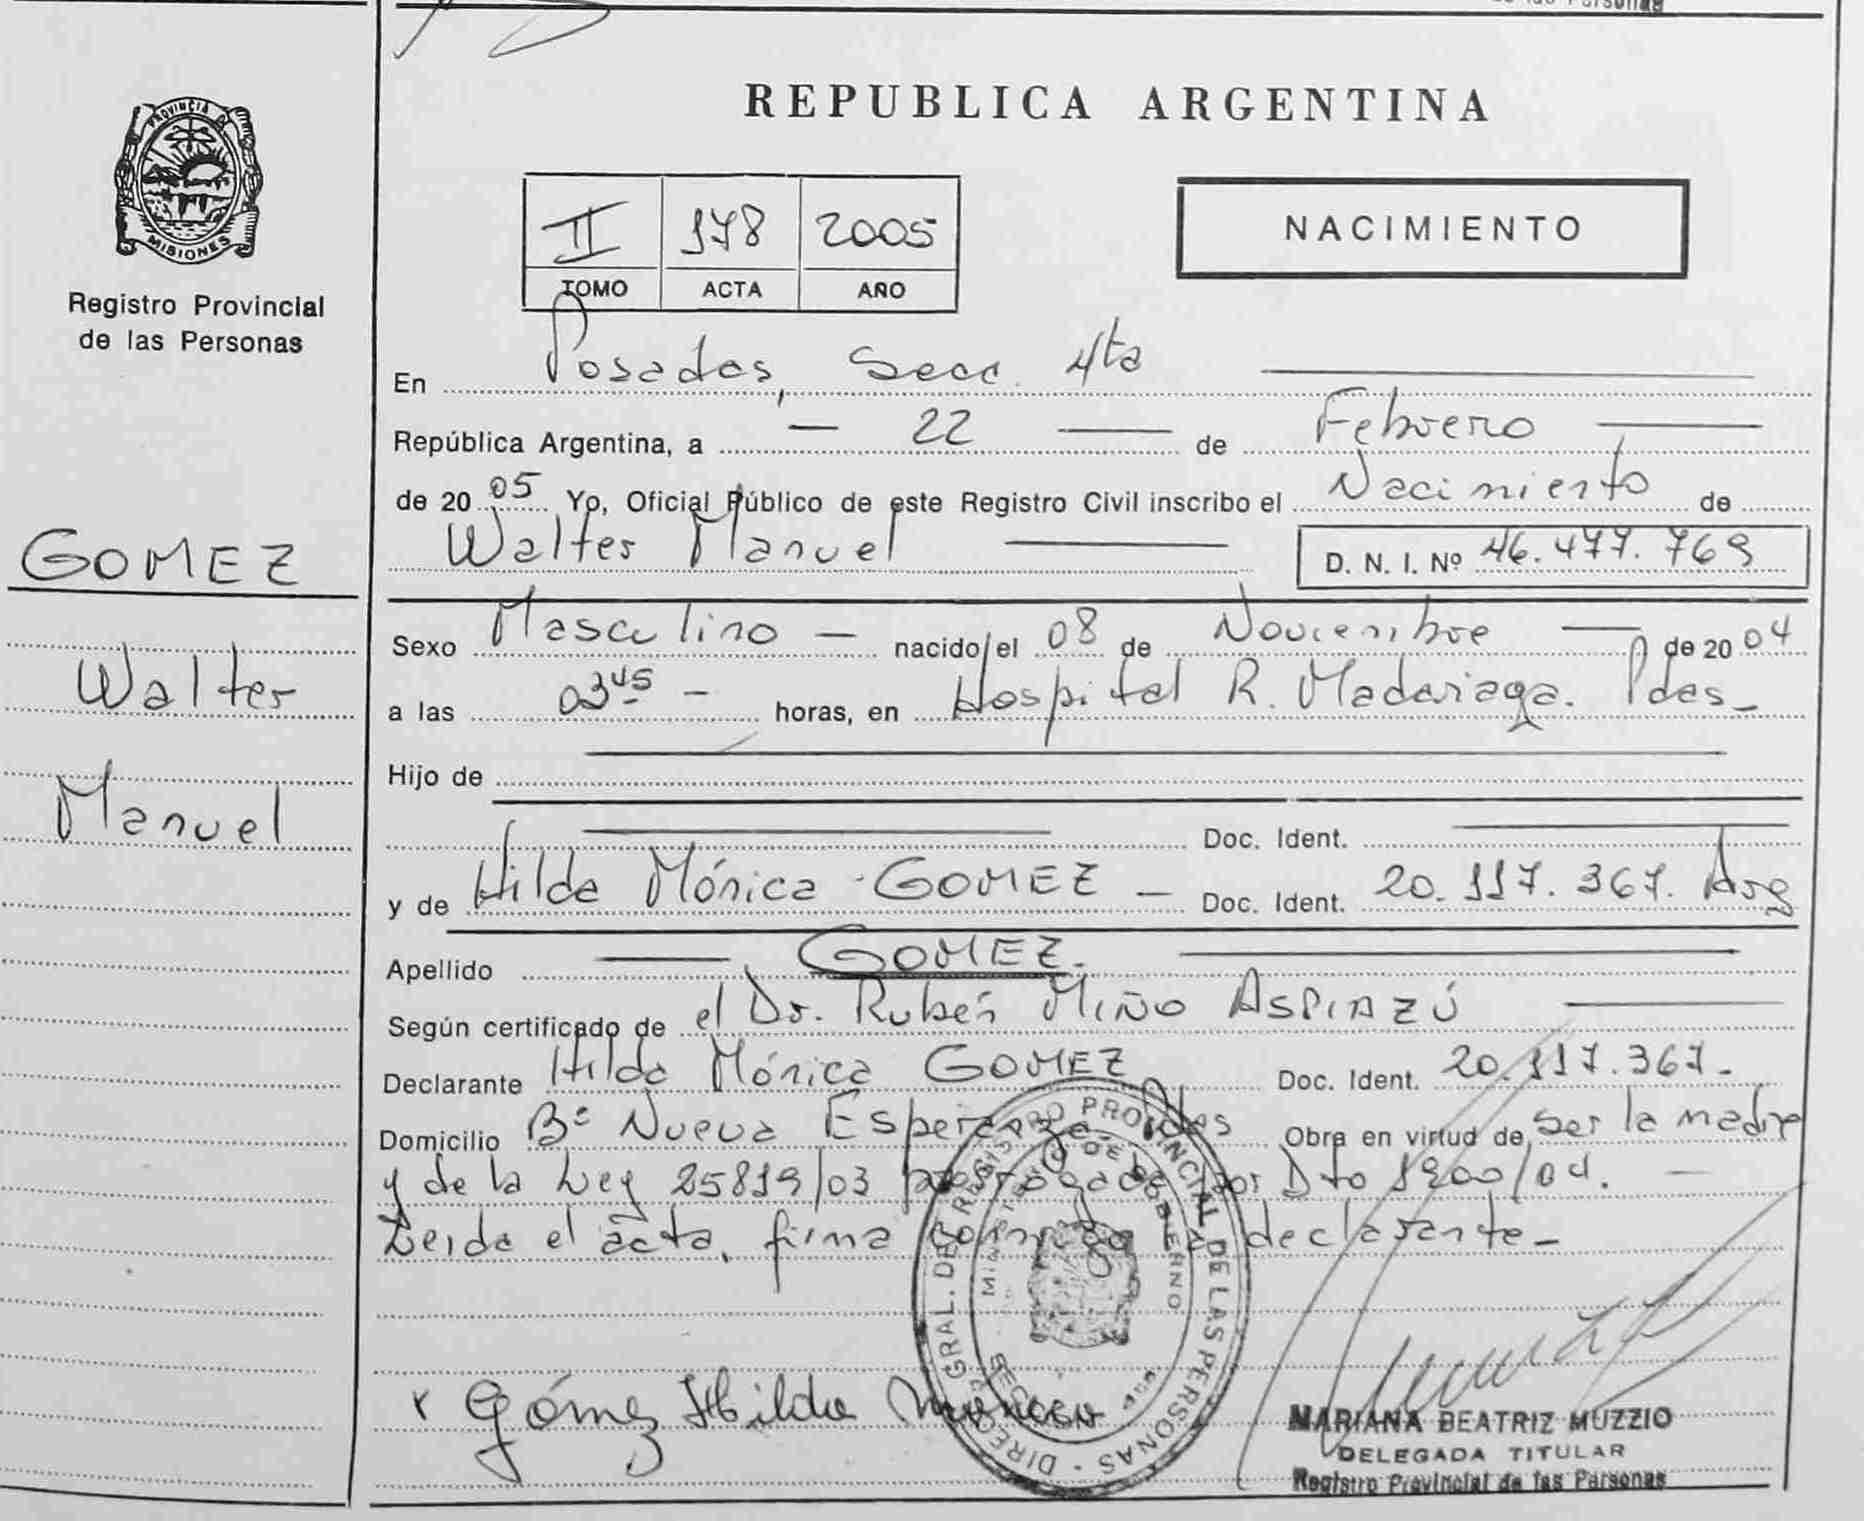 de las Personas
REPUBLICA ARGENTINA
PROVINCIA DE
MISIONES
Registro Provincial
de las Personas
II 178 2005
TOMO ACTA AÑO
NACIMIENTO
GOMEZ
Walter
Manuel
En Posadas, Secc. 4ta
República Argentina, a 22 de Febrero
de 20 05 Yo, Oficial Público de este Registro Civil inscribo el Nacimiento de
Walter Manuel D. N. I. Nº 46.477.769
Sexo Masculino nacido el 08 de Noviembre de 20 04
a las 03 45 horas, en Hospital R. Madariaga. Pdas
Hijo de
Doc. Ident.
y de Hilda Mónica GOMEZ Doc. Ident. 20.117.367. Arg
Apellido GOMEZ.
Según certificado de el Dr. Rubén MIÑO ASPIAZÚ
Declarante Hilda Mónica GOMEZ Doc. Ident. 20.117.367.
Domicilio Bº Nueva Esperanza Pdas Obra en virtud de ser la madre
y de la Ley 25819/03 prorrogada por Dto 1900/04.
Leida el acta, firma conmigo la declarante
DIREC. GRAL. DE REGISTRO PROVINCIAL DE LAS PERSONAS
MINISTERIO DE GOBIERNO
x Gómez Hilda Monica
MARIANA BEATRIZ MUZZIO
DELEGADA TITULAR
Registro Provincial de las Personas